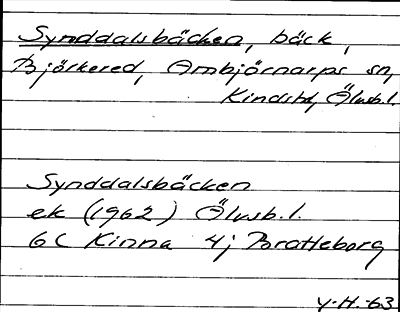 Synddalsbäcken, bäck,
Björkered, Ambjörnarps sn,
Kindshd, Älvsb.l.
Synddalsbäcken
ek (1962) Älvsb.l.
6C Kinna 4j Bratteborg
Y.H.-63